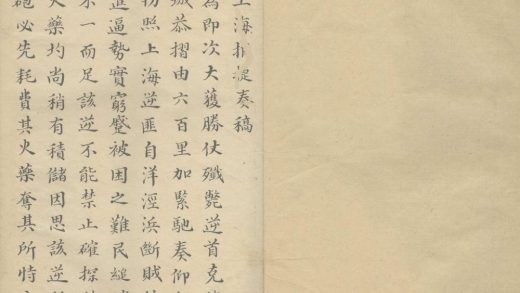 上海捕捉奏稿
為即次大獲勝仗殲斃逆首克
恭摺由六百里加緊馳奏仰
照上海逆匪自洋涇浜斷賊
進逼勢實窮蹙被困之難民縋
不一而足該逆不能禁止確探
火藥均尚稍有積儲因思該逆
砲必先耗費其火藥奪其所恃